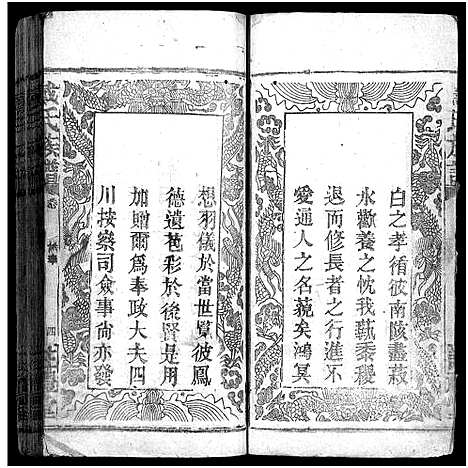 白之孝循彼南陔盡菽
水歡養之忱我蓺黍稷
退而修長者之行進不
愛通人之名藐矣鴻冥
想羽儀於當世覽彼鳳
德遺苞彩於後賢是用
加贈爾為奉政大夫四
川按察司僉事尚亦發
氏族譜
卷
四
氏族譜